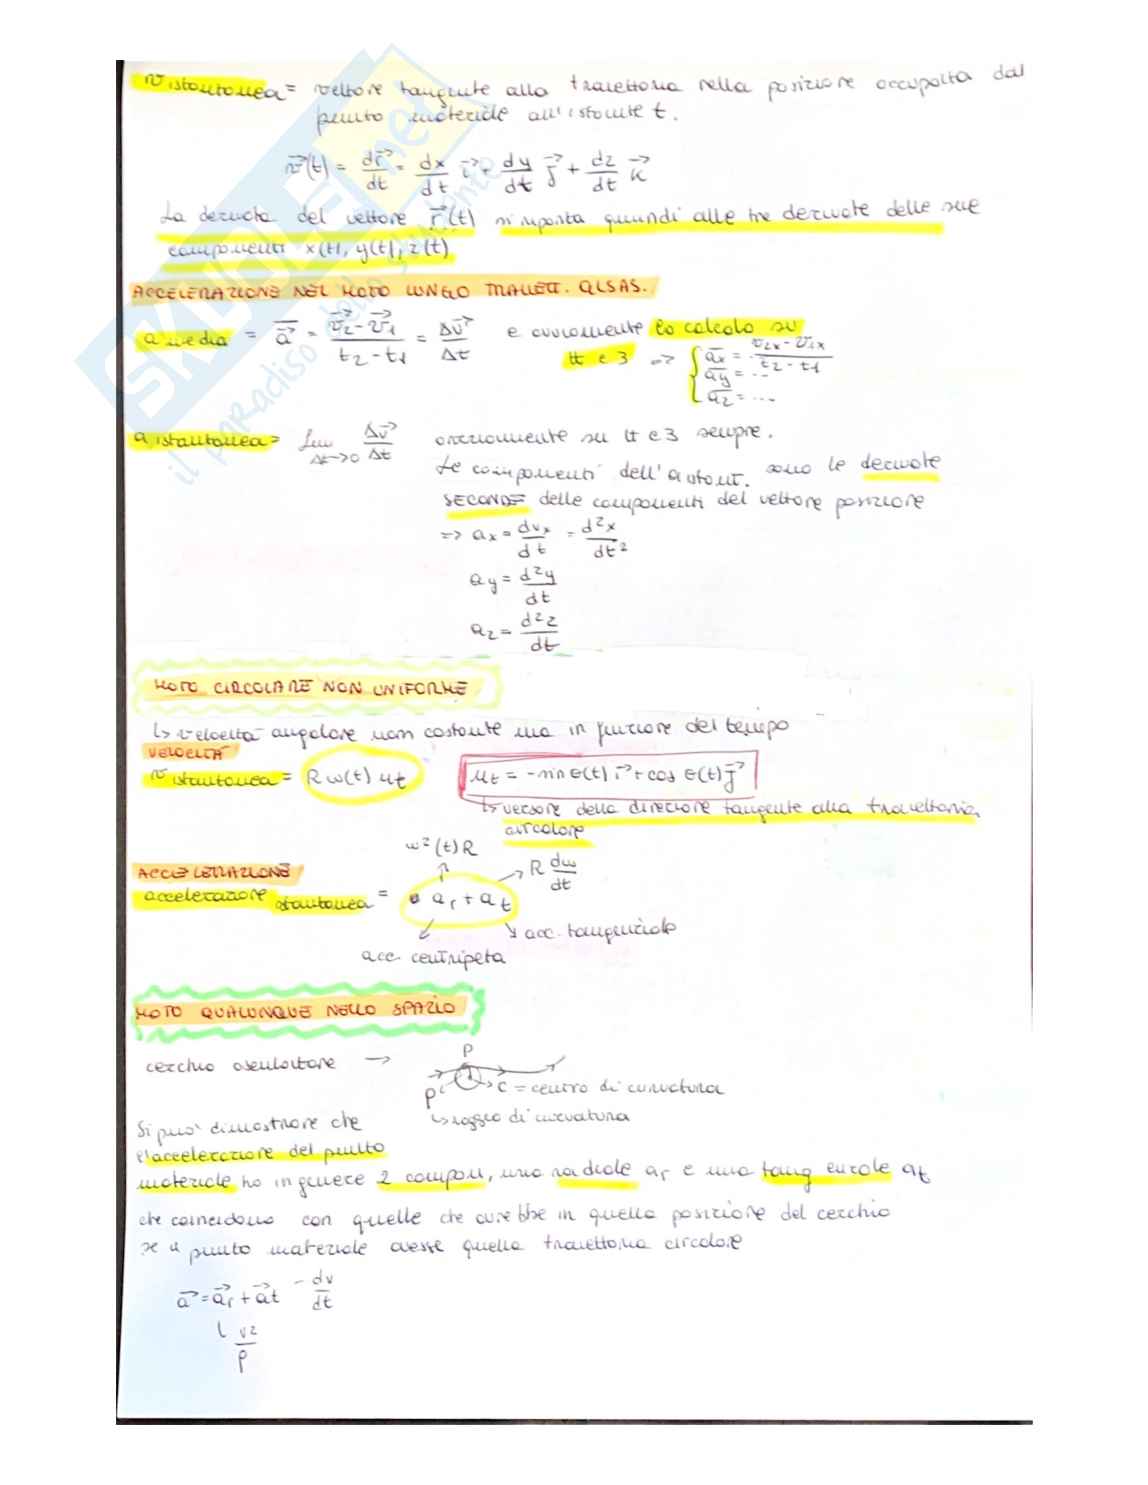 v istantanea = vettore tangente alla traiettoria nella posizione occupata dal
punto materiale all'istante t.
v(t) = dr/dt = dx/dt i + dy/dt j + dz/dt k
La derivata del vettore r(t) si riporta quindi alle tre derivate delle sue
componenti x(t), y(t), z(t)
ACCELERAZIONE NEL MOTO LUNGO TRAIETT. QLSAS.
a media = a = v2 - v1 / t2 - t1 = Δv / Δt e ovviamente lo calcolo su
tt e 3 => { ax = v2x - v1x / t2 - t1
ay = ...
az = ...
a istantanea = lim Δt->0 Δv/Δt ovviamente su tt e 3 sempre.
Le componenti dell'a istant. sono le derivate
SECONDE delle componenti del vettore posizione
=> ax = dvx/dt = d²x/dt²
ay = d²y/dt
az = d²z/dt
MOTO CIRCOLARE NON UNIFORME
↳ velocità angolare non costante ma in funzione del tempo
VELOCITÀ
v istantanea = R w(t) ut ut = -sin θ(t) i + cos θ(t) j
↳ versore della direzione tangente alla traiettoria
circolare
w²(t) R
ACCELERAZIONE R dw/dt
accelerazione istantanea = ar + at
↘ acc. tangenziale
acc. centripeta
MOTO QUALUNQUE NELLO SPAZIO
cerchio osculatore → P
ρ C = centro di curvatura
↳ raggio di curvatura
Si può dimostrare che
l'accelerazione del punto
materiale ha in genere 2 compon, una radiale ar e una tangenziale at
che coincidono con quelle che avrebbe in quella posizione del cerchio
se il punto materiale avesse quella traiettoria circolare
a = ar + at - dv/dt
v²/ρ
SKUOLA.net
il paradiso dello studente